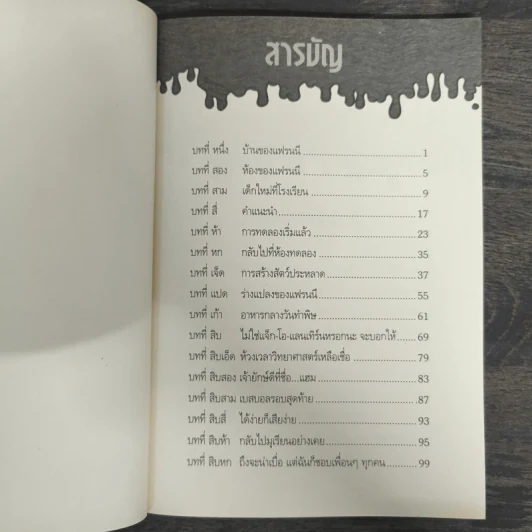 สารบัญ
บทที่ หนึ่ง บ้านของแฟรนนี 1
บทที่ สอง ห้องของแฟรนนี 5
บทที่ สาม เด็กใหม่ที่โรงเรียน 9
บทที่ สี่ คำแนะนำ 17
บทที่ ห้า การทดลองเริ่มแล้ว 23
บทที่ หก กลับไปที่ห้องทดลอง 35
บทที่ เจ็ด การสร้างสัตว์ประหลาด 37
บทที่ แปด ร่างแปลงของแฟรนนี 55
บทที่ เก้า อาหารกลางวันทำพิษ 61
บทที่ สิบ ไม่ใช่แจ็ก-โอ-แลนเทิร์นหรอกนะ จะบอกให้ 69
บทที่ สิบเอ็ด ห้วงเวลาวิทยาศาสตร์เหลือเชื่อ 79
บทที่ สิบสอง เจ้ายักษ์ดีที่ชื่อ...แฮม 83
บทที่ สิบสาม เบสบอลรอบสุดท้าย 87
บทที่ สิบสี่ ได้ง่ายก็เสียง่าย 93
บทที่ สิบห้า กลับไปมุเรียนอย่างเคย 95
บทที่ สิบหก ถึงจะน่าเบื่อ แต่ฉันก็ชอบเพื่อนๆ ทุกคน 99